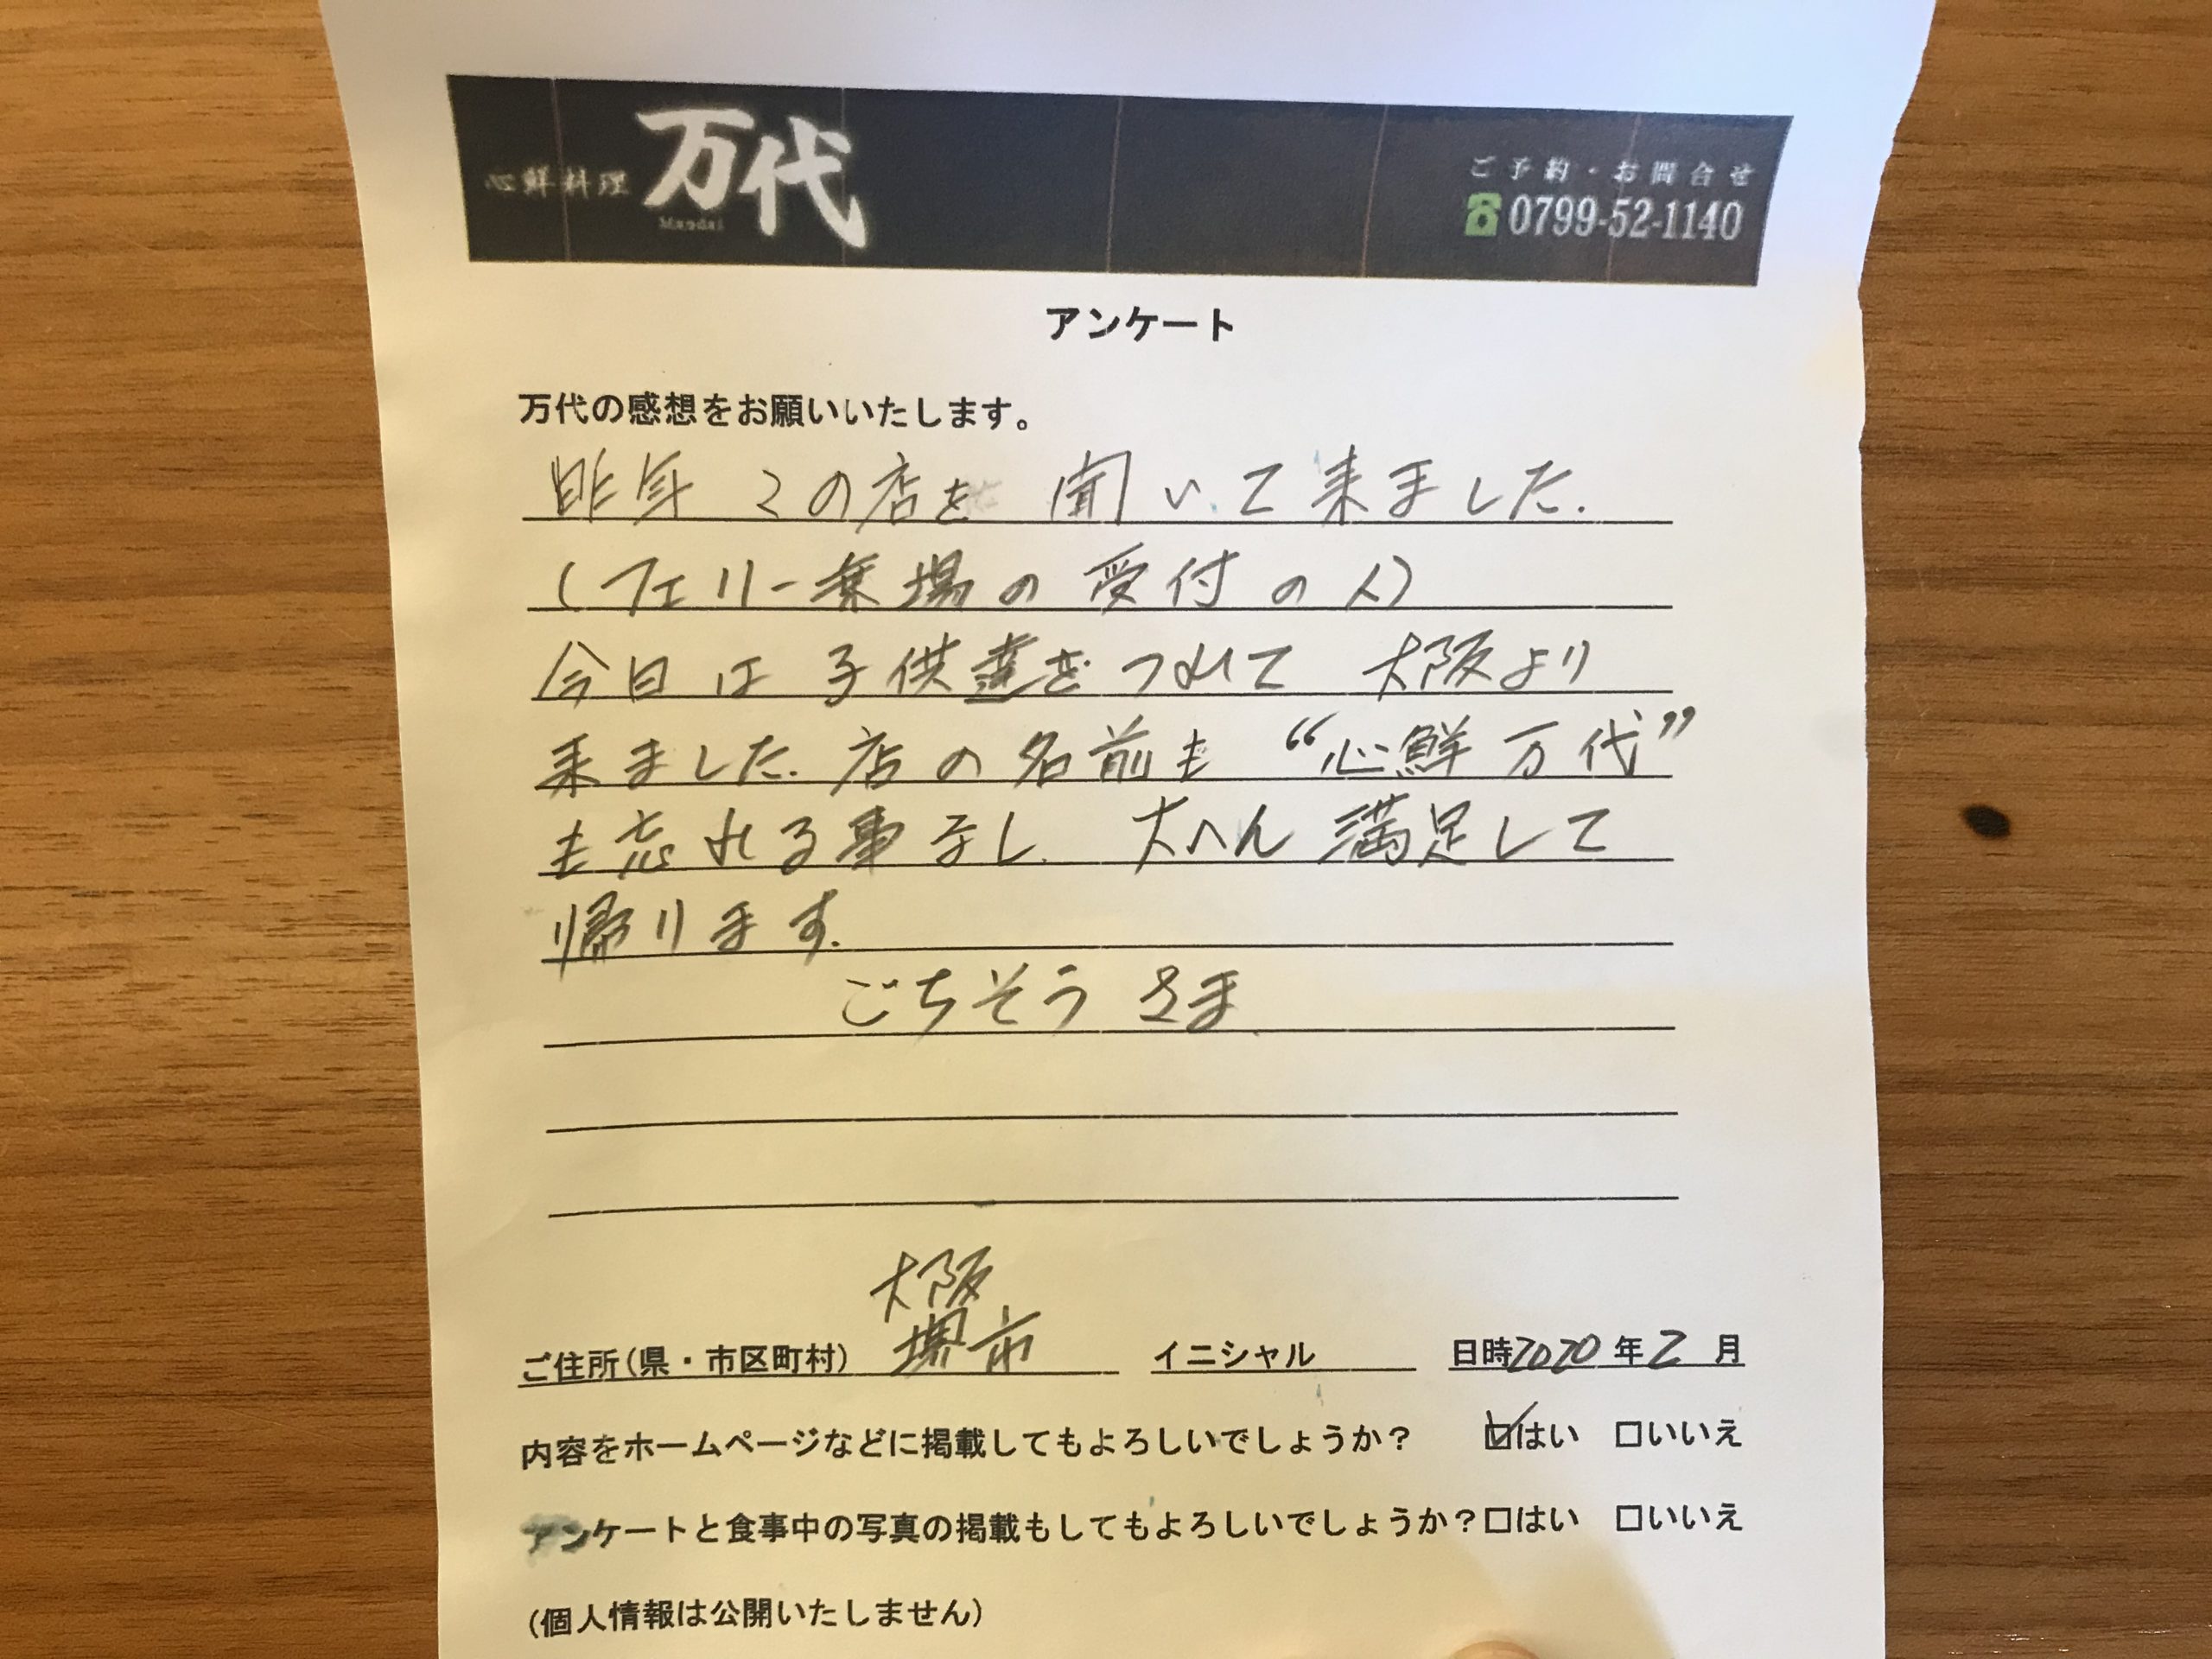 心鮮料理 万代
Mandai
ご予約・お問合せ
0799-52-1140
アンケート
万代の感想をお願いいたします。
昨年 この店を 聞いて来ました.
(フェリー乗場の受付の人)
今日は子供達をつれて 大阪より
来ました. 店の名前も “心鮮 万代”
も忘れる事なし. 大へん満足して
帰ります.
ごちそうさま
大阪
ご住所(県・市区町村) 堺市 イニシャル 日時2020年2月
内容をホームページなどに掲載してもよろしいでしょうか? ☑はい □いいえ
アンケートと食事中の写真の掲載もしてもよろしいでしょうか?□はい □いいえ
(個人情報は公開いたしません)